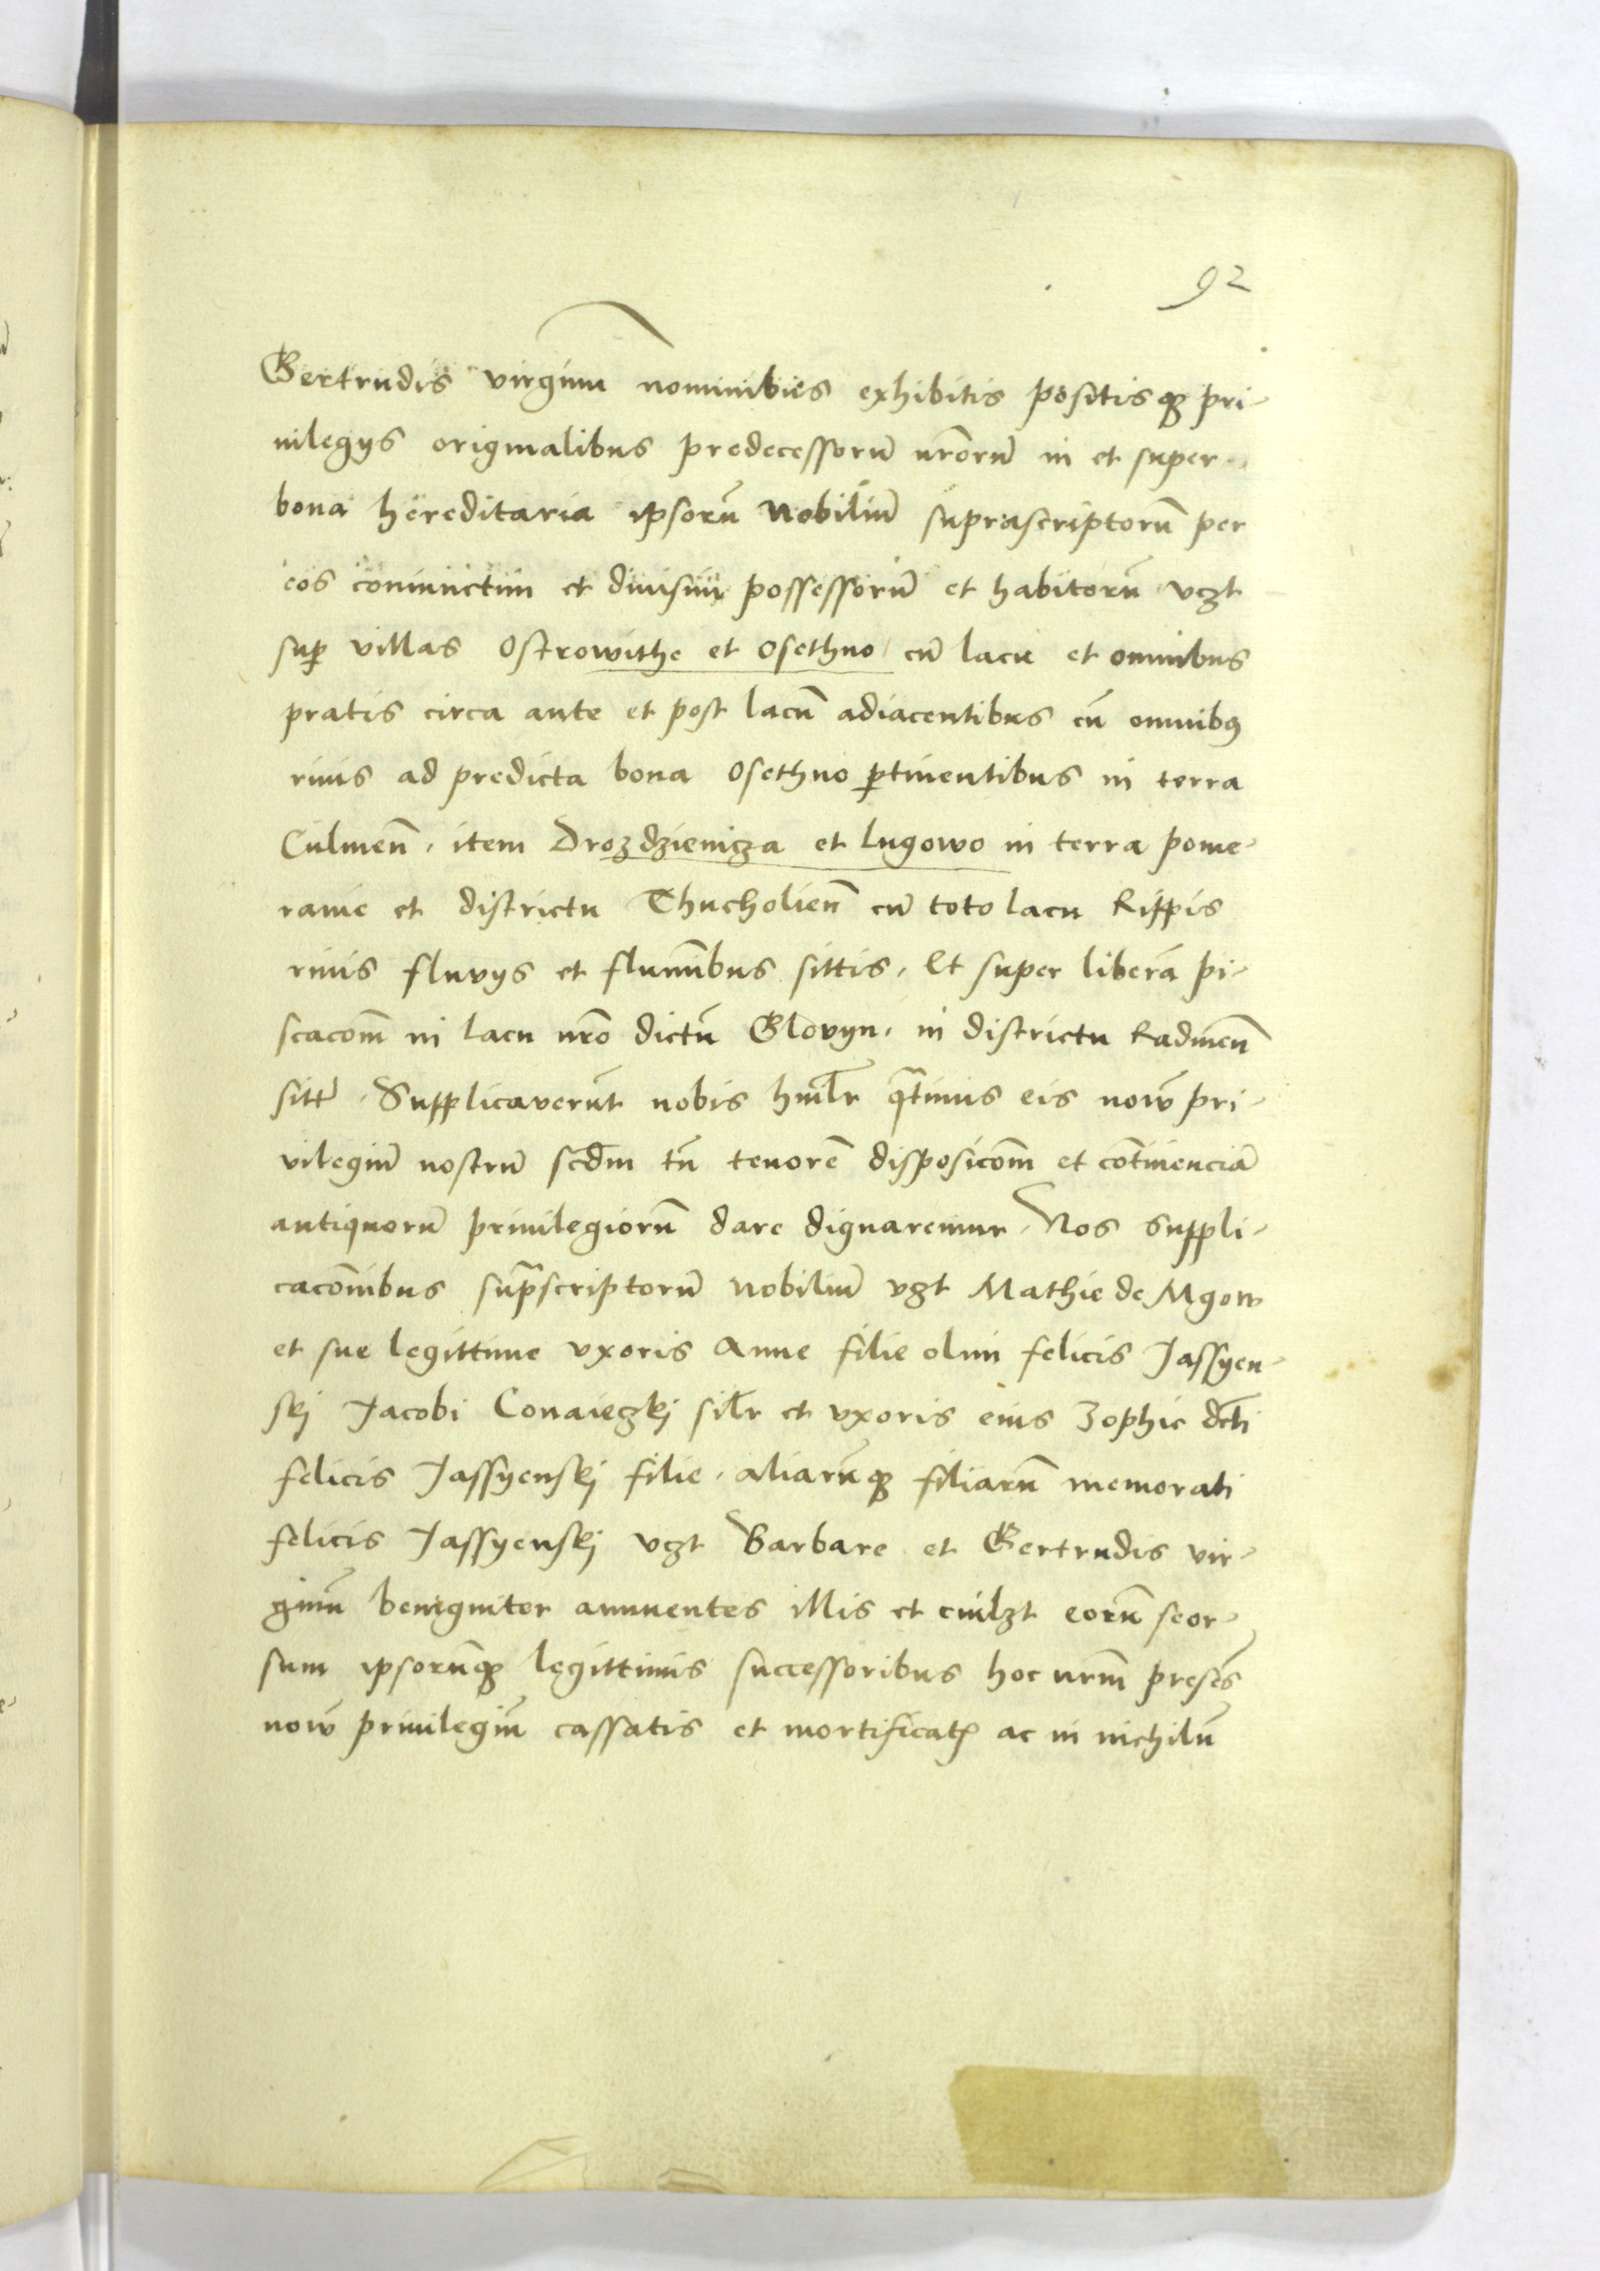 92
Gertrudis virginum nominibus exhibitis positisq3 pri-
uilegys originalibus predecessorū nr̄orū in et super
bona hereditaria ipsorū Nobiliū suprascriptorū per
eos coniunctim et diuisim possessorū et habitorū vczt
sup villas Ostrowithe et Osethno cū lacu et omnibus
pratis circa ante et post lacū adiacentibus cū omnibꝰ
riuis ad predicta bona Osethno ꝑtinentibus in terra
Culmen̄. item Drozdzienicza et Lugowo in terra pome-
ranie et districtu Thucholien̄ cū toto lacu Rippis
riuis fluvys et fluminibus sittis. Et super liberā pi-
scacōm in lacu nr̄o dictū Glovyn. in districtu Radinen̄
sitt̄. Supplicaverūt nobis hūilr̄ qͣtinus eis nouū pri-
vilegiū nostrū scd̄m tn̄ tenorē disposicōm et cōtinenciā
antiquorū priuilegiorū dare dignaremur. Nos suppli-
cacōnibus supͣscriptorū nobiliū vczt Mathie de Mgow
et sue legittime vxoris Anne filie olim felicis Jassyen-
skj Jacobi Conaieczkj sil̄r et vxoris eius Zophie dc̄ti
felicis Jassyenskj filie. aliarūq3 filiarū memorati
felicis Jassyenskj vczt Barbare et Gertrudis vir-
ginū benigniter annuentes illis et cuilzt eorū seor-
sum ipsorūq3 legittimis successoribus hoc nr̄m presēs
nouū priuilegiū cassatis et mortificatꝭ ac in nichilū